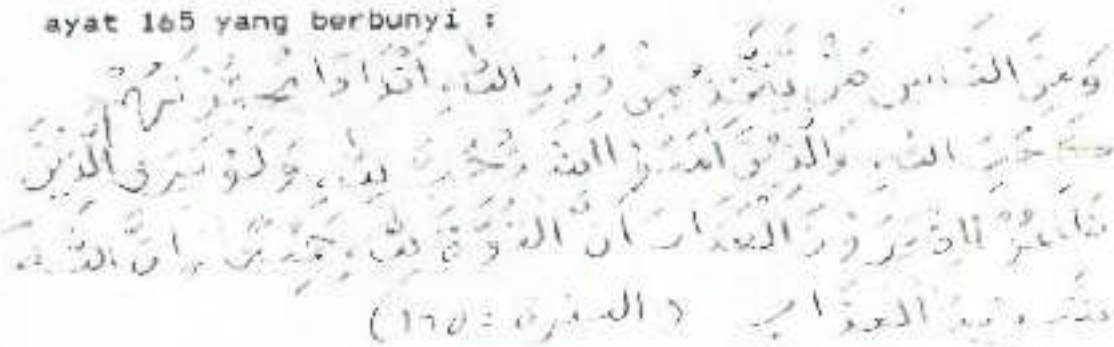 ayat 165 yang berbunyi :
وَمِنَ النَّاسِ مَنْ يَتَّخِذُ مِنْ دُوْنِ اللّٰهِ اَنْدَادًا يُحِبُّوْنَهُمْ
كَحُبِّ اللّٰهِ وَالَّذِيْنَ اٰمَنُوْا اَشَدُّ حُبًّا لِلّٰهِ وَلَوْ يَرَى الَّذِيْنَ
ظَلَمُوْا اِذْ يَرَوْنَ الْعَذَابَ اَنَّ الْقُوَّةَ لِلّٰهِ جَمِيْعًا وَاَنَّ اللّٰهَ
شَدِيْدُ الْعَذَابِ ( البقرة : ١٦٥ )